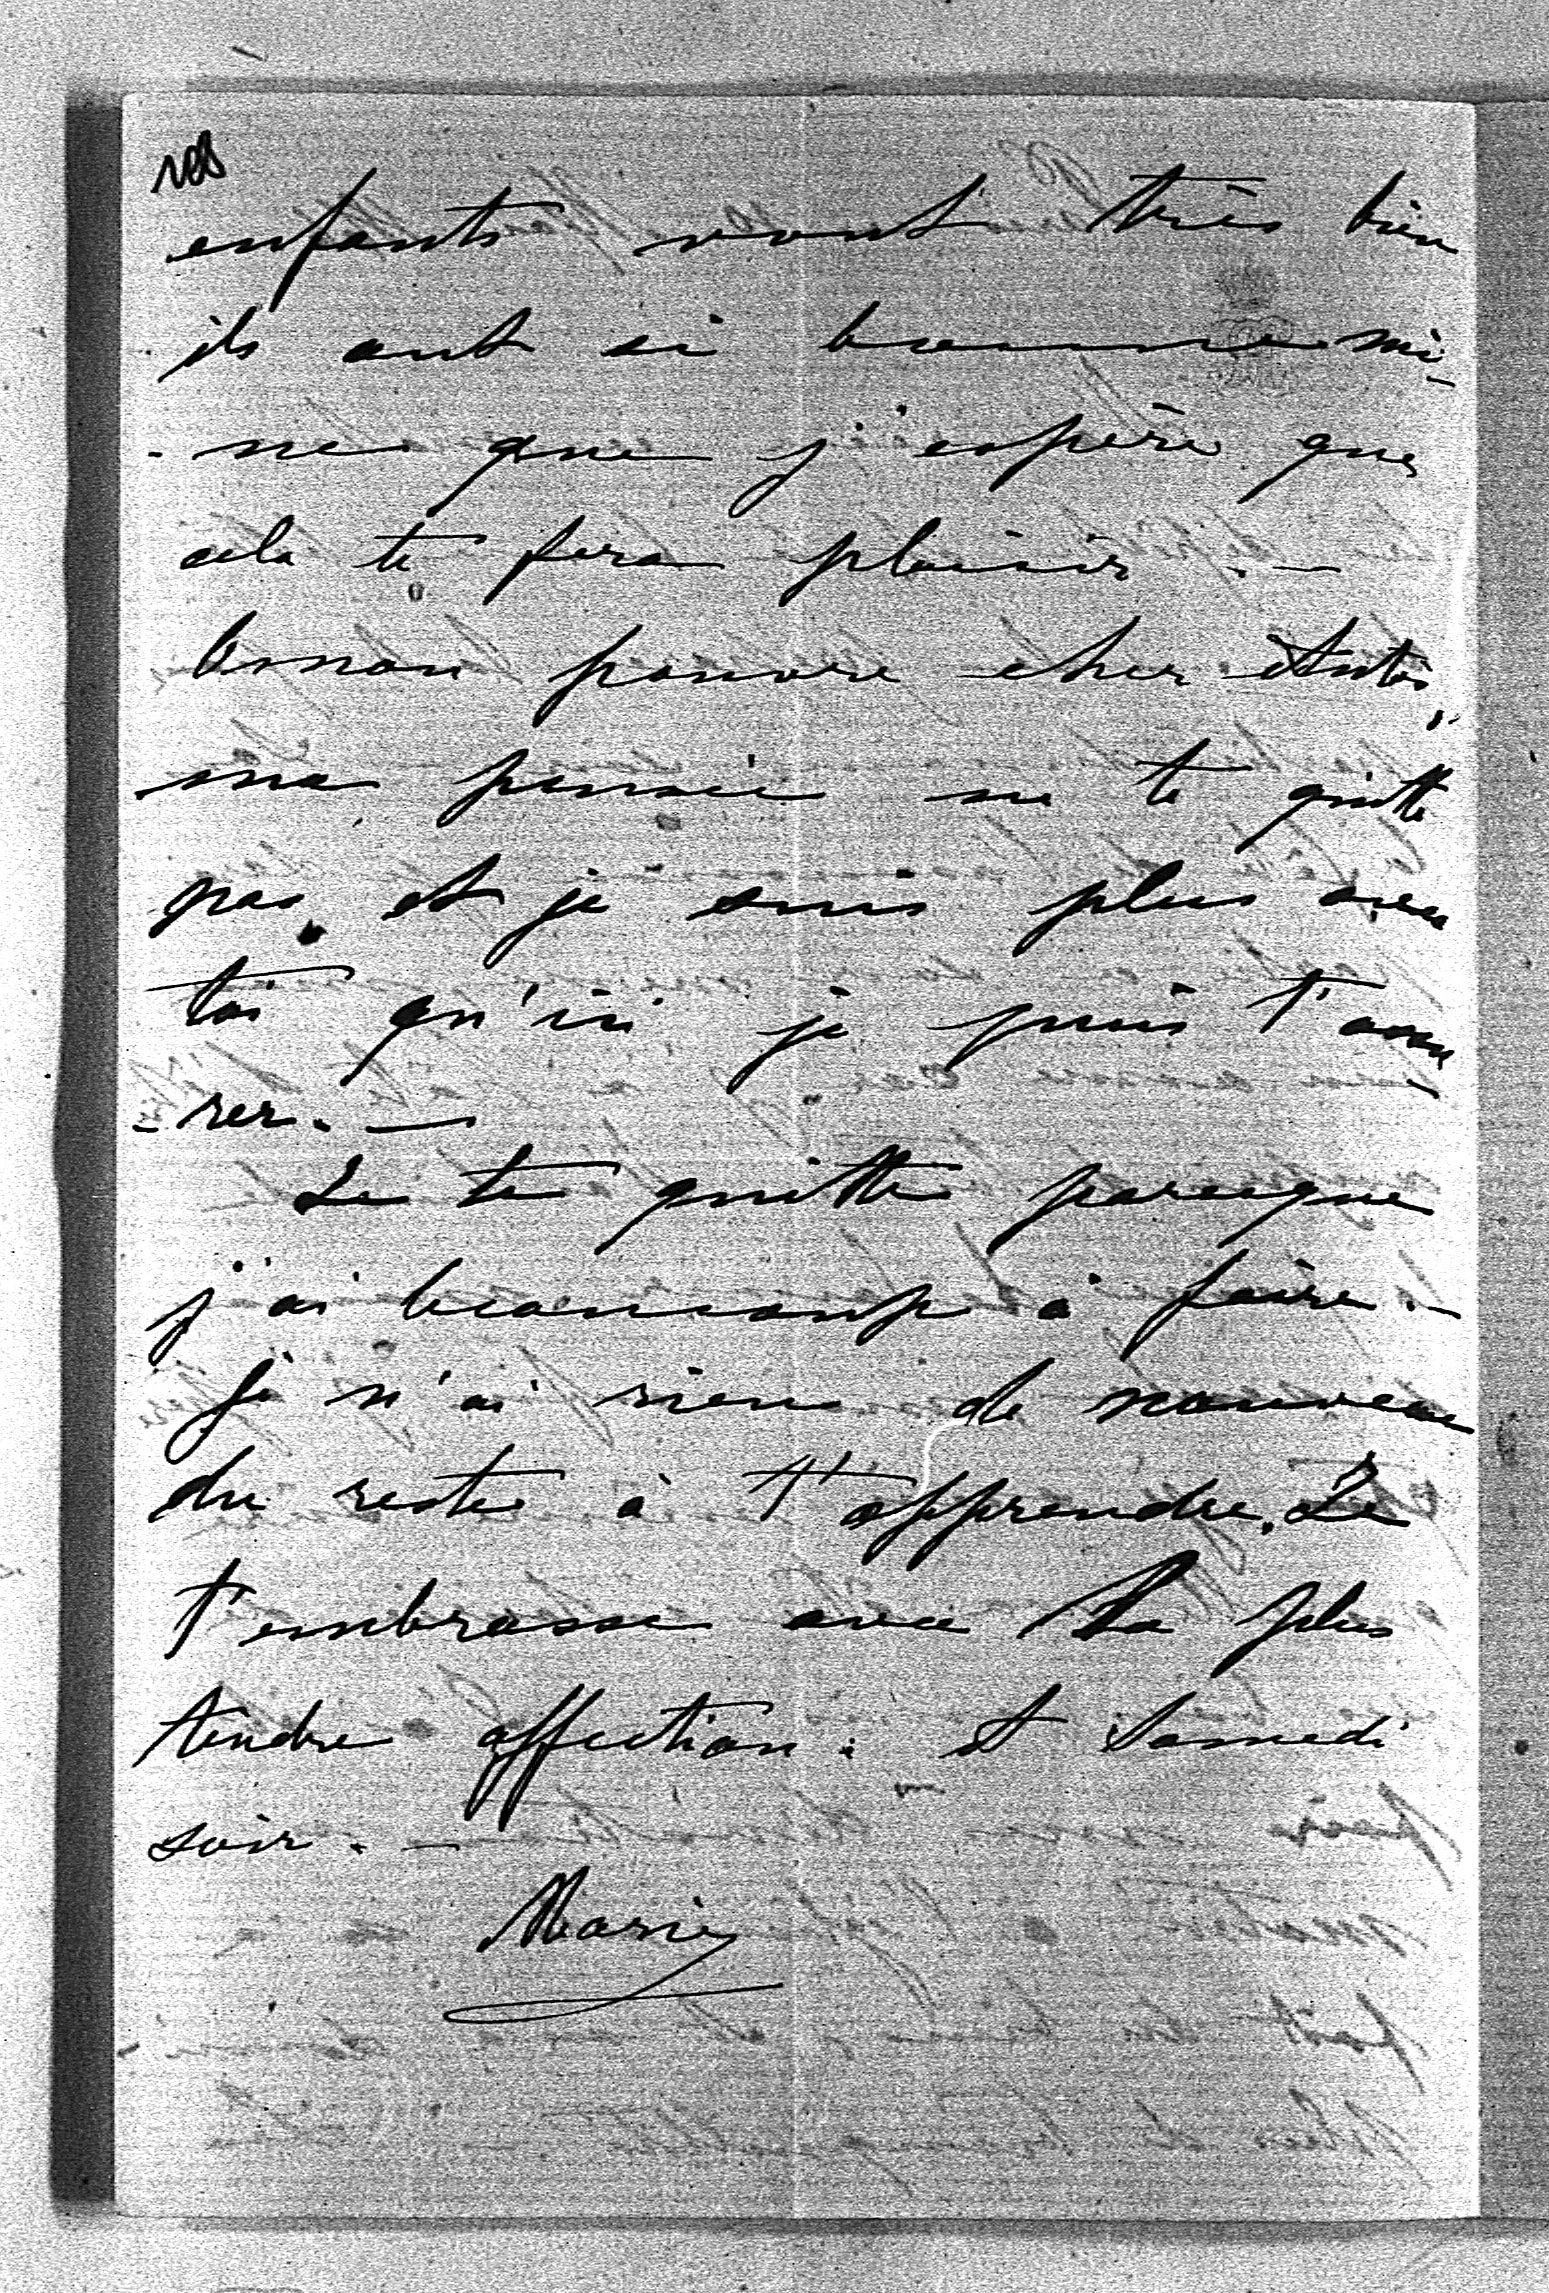 enfants vont très bien
ils ont si bonne mi-
-ne que j'espère que
cela te fera plaisir. —
mon pauvre cher
ma pensée ne te quitte
pas et je suis plus avec
toi qu'ici je puis t'assu-
-rer. —
Je te quitte parceque
j'ai beaucoup à faire. —
Je n'ai rien de nouveau
du reste à t'apprendre. Je
t'embrasse avec la plus
tendre affection. et Samedi
soir. —
Marie